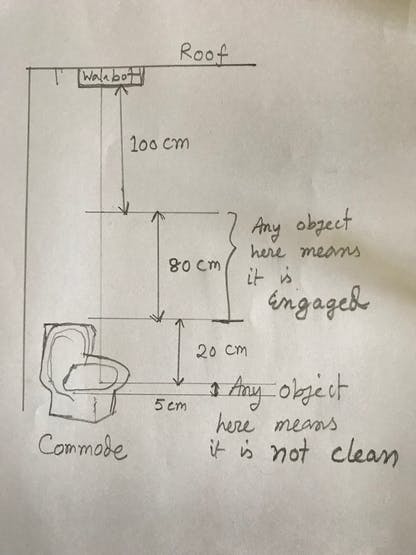 Roof
Walabot
100 cm
Any object
here means
it is
Engaged
80 cm
20 cm
5 cm
Any object
here means
it is not clean
Commode